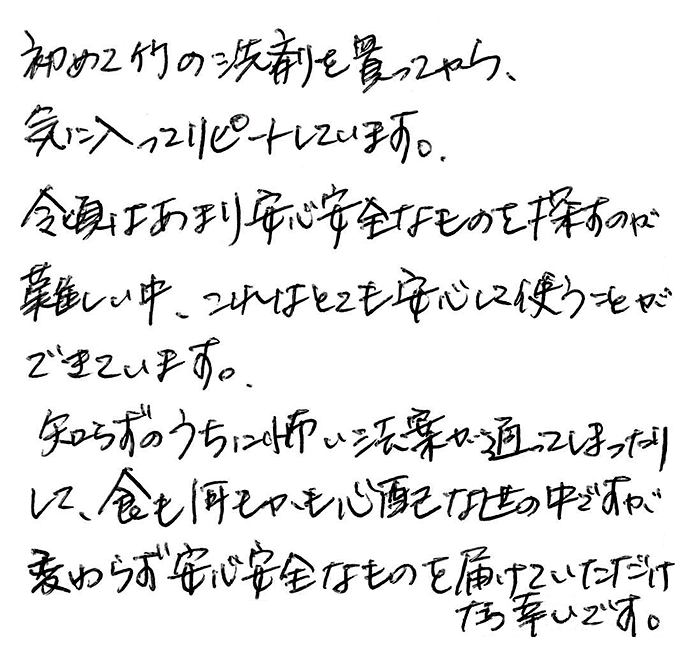 初めて竹の洗剤を買ってから、
気に入ってリピートしています。
今頃はあまり安心安全なものを探すのが
難しい中、これはとても安心して使うことが
できています。
知らずのうちに怖い法案が通ってしまったり
して、食も何もかも心配な世の中ですが、
変わらず安心安全なものを届けていただけ
たら幸いです。